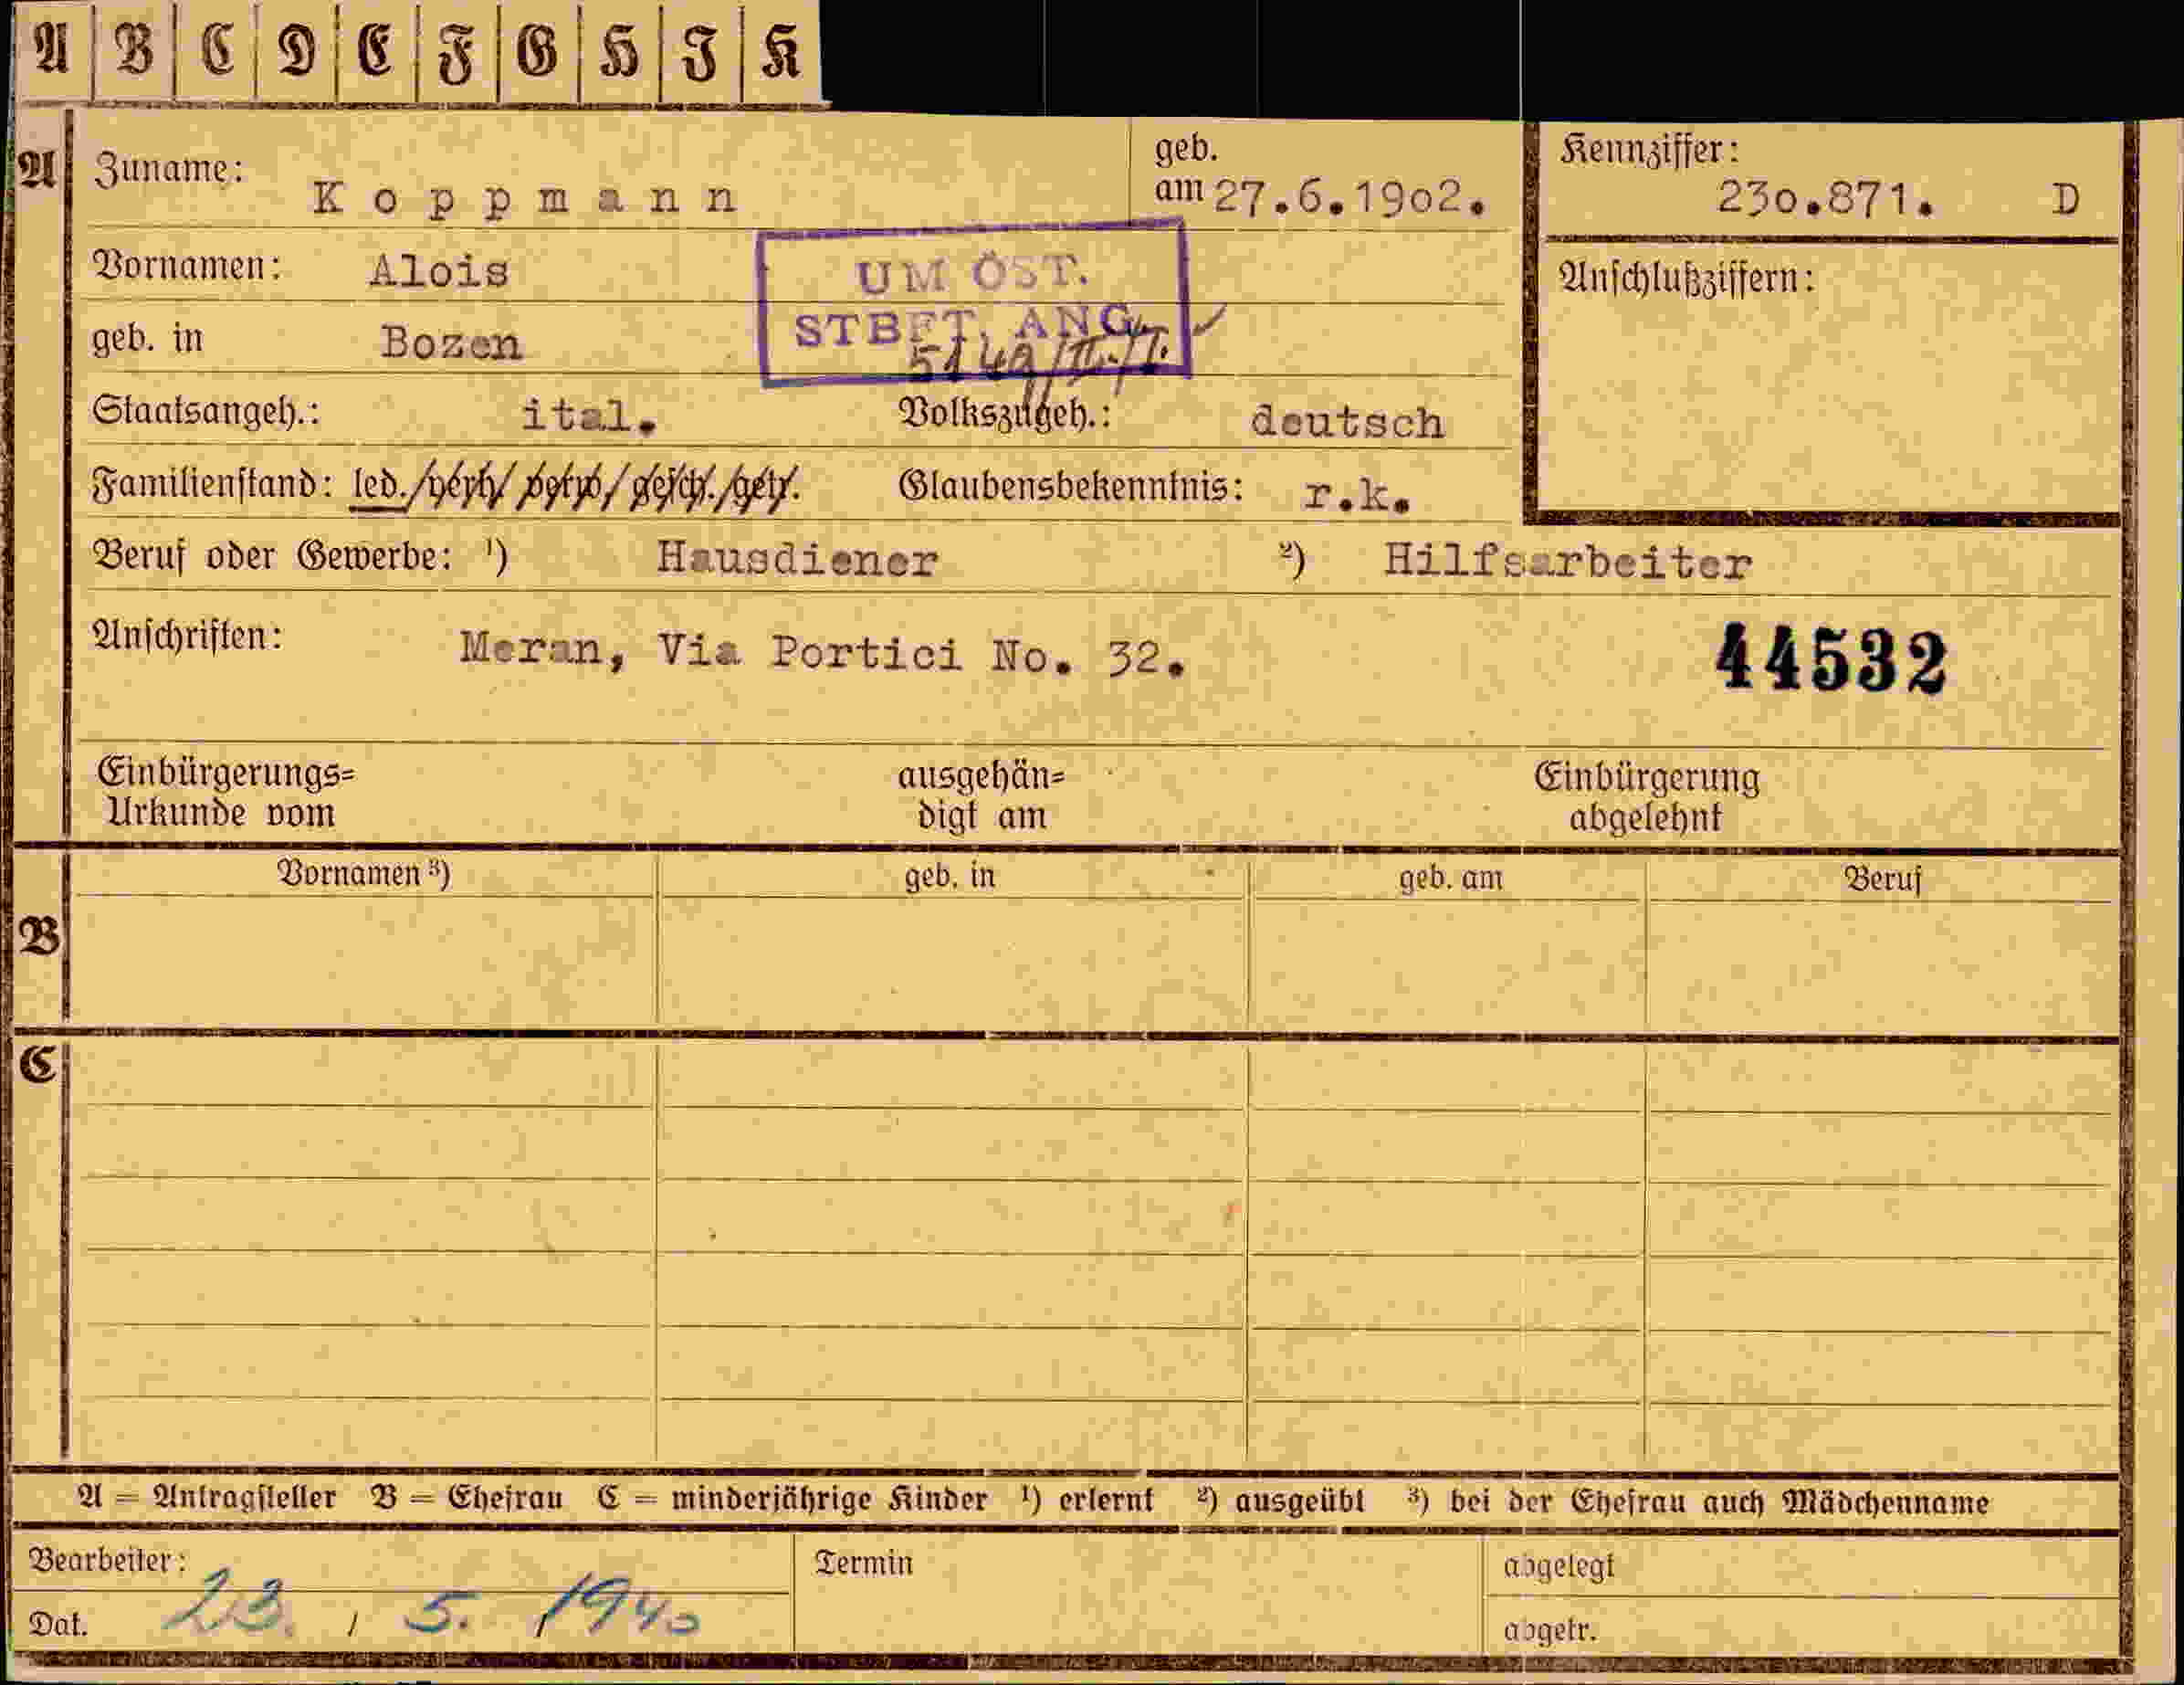 A B C D E F G H J K
A Zuname: Koppmann geb. am 27.6.1902. Kennziffer: 230.871. D
Vornamen: Alois UM ÖST. Anschlußziffern:
geb. in Bozen STBET. ANG.
Staatsangeh.: ital. Volkszugeh.: deutsch
Familienstand: led./verh/ verw/ gesch./getr. Glaubensbekenntnis: r.k.
Beruf oder Gewerbe: ¹) Hausdiener ²) Hilfsarbeiter
Anschriften: Meran, Via Portici No. 32. 44532
Einbürgerungs= ausgehän= Einbürgerung
Urkunde vom digt am abgelehnt
Vornamen ³) geb. in geb. am Beruf
B
C
A = Antragsteller B = Ehefrau C = minderjährige Kinder ¹) erlernt ²) ausgeübt ³) bei der Ehefrau auch Mädchenname
Bearbeiter: Termin abgelegt
Dat. 23. / 5. 1940 abgetr.